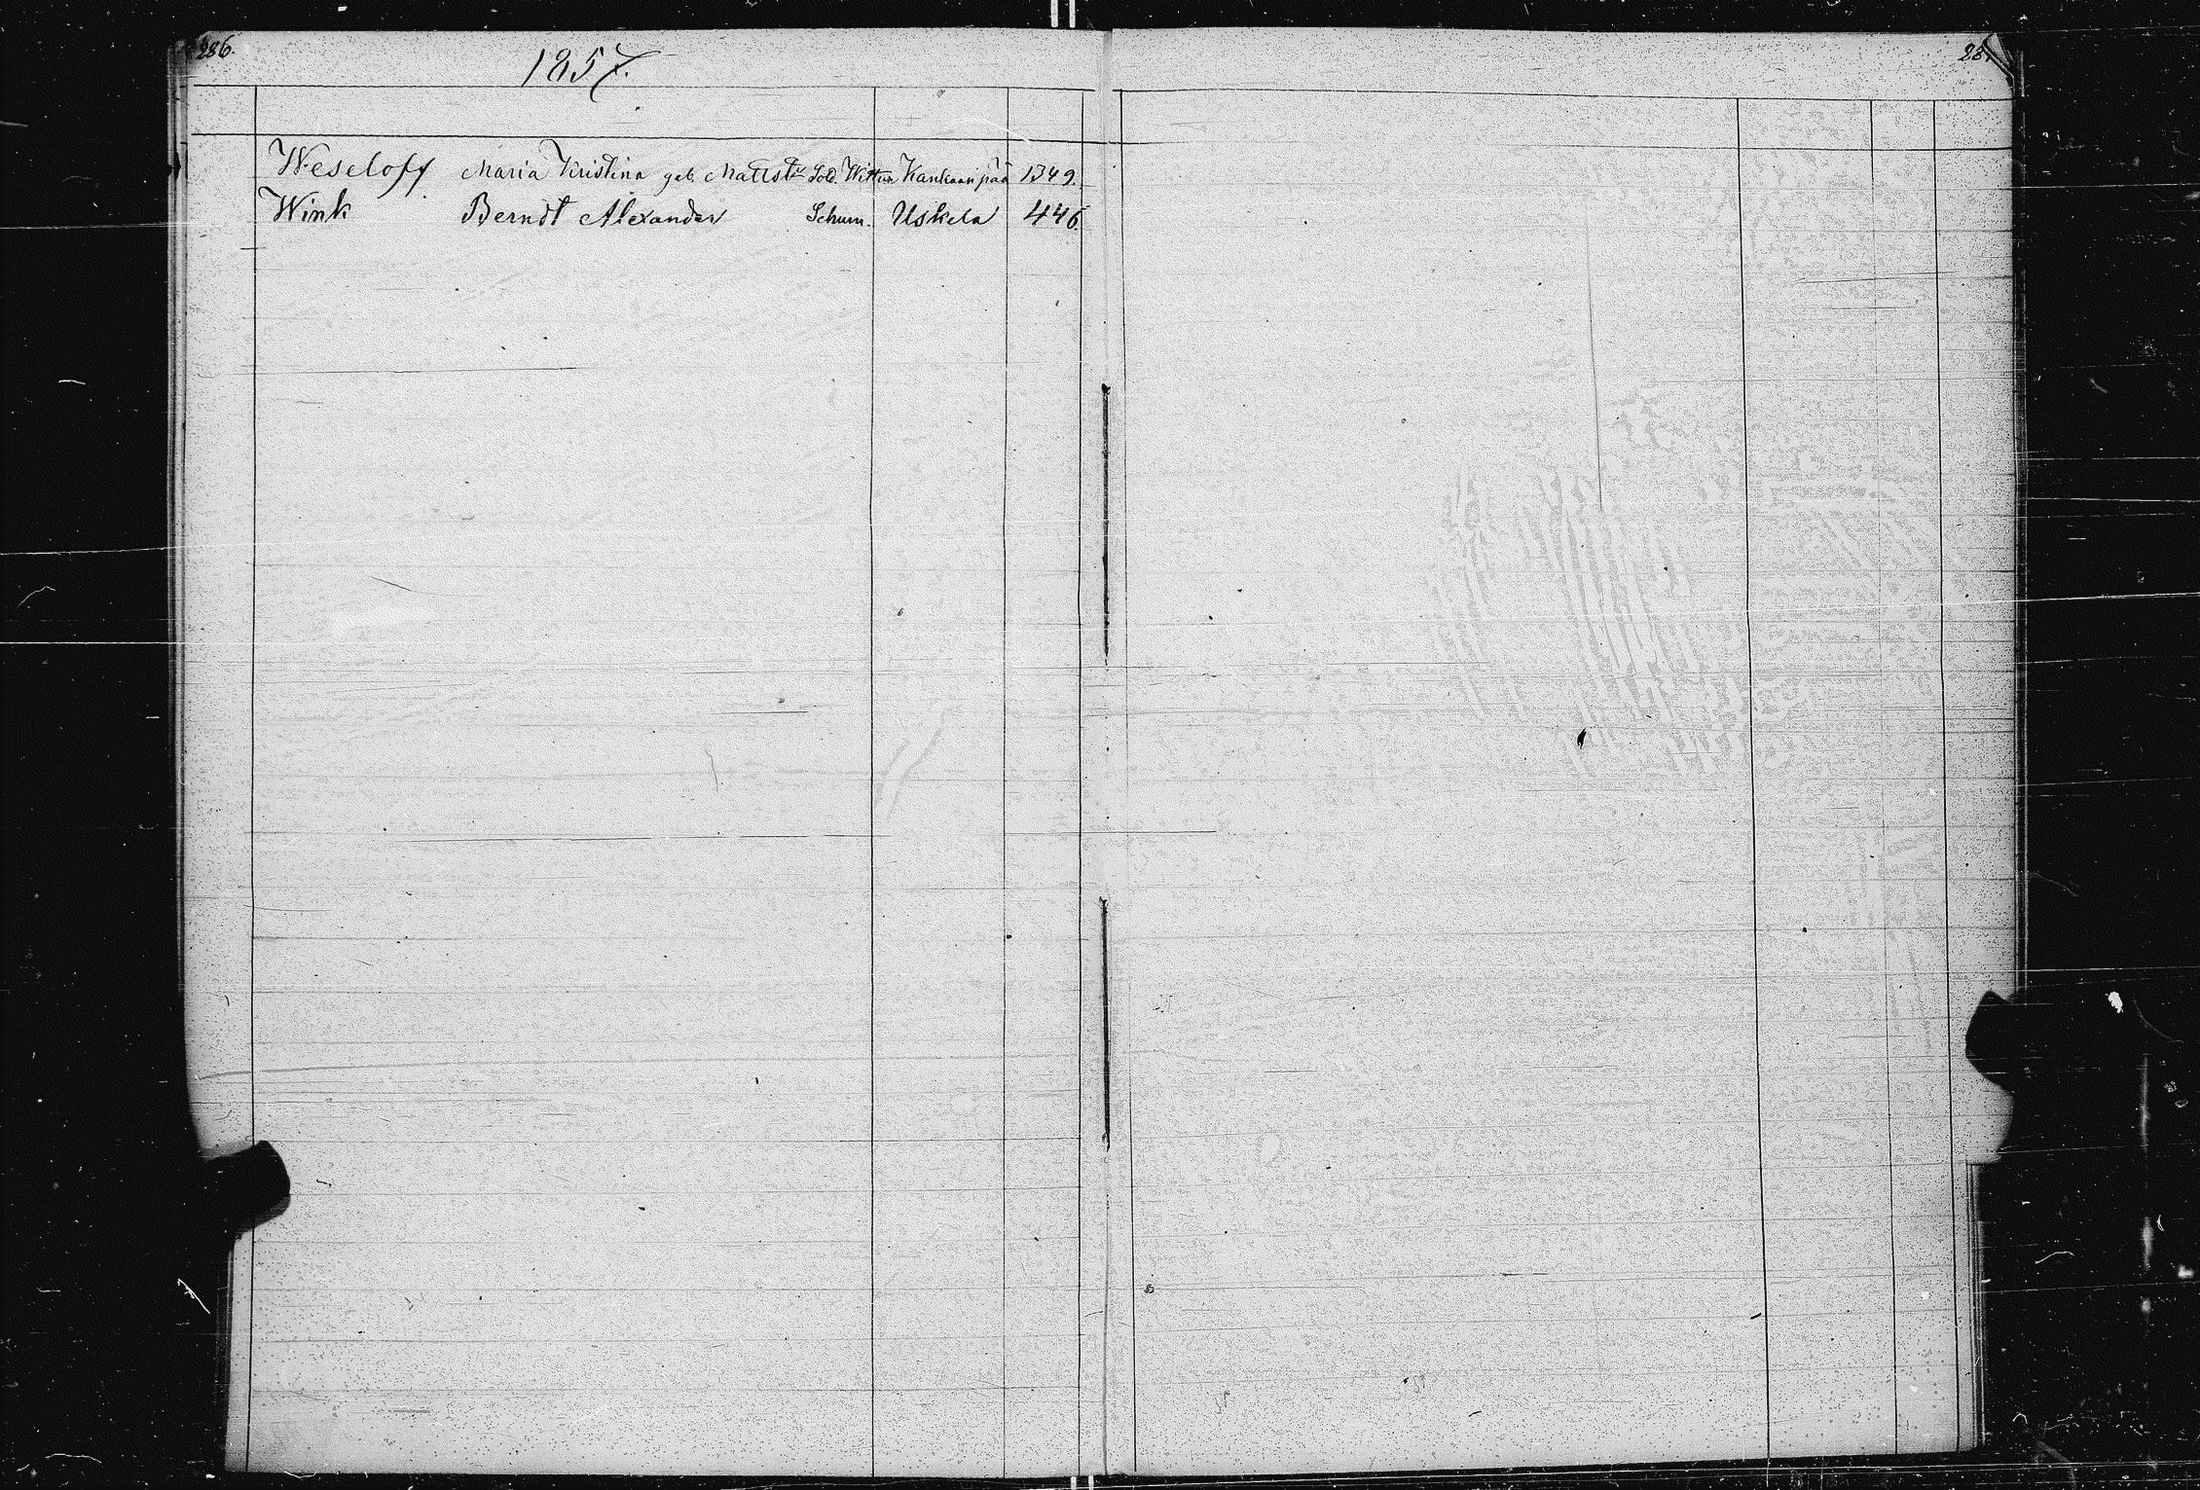 286.
1857.
Weseloff Maria Kristina geb. Mattstr Sold. Wittwe Kankaanpää 1349.
Wink Berndt Alexander Schum. Uskela 446.